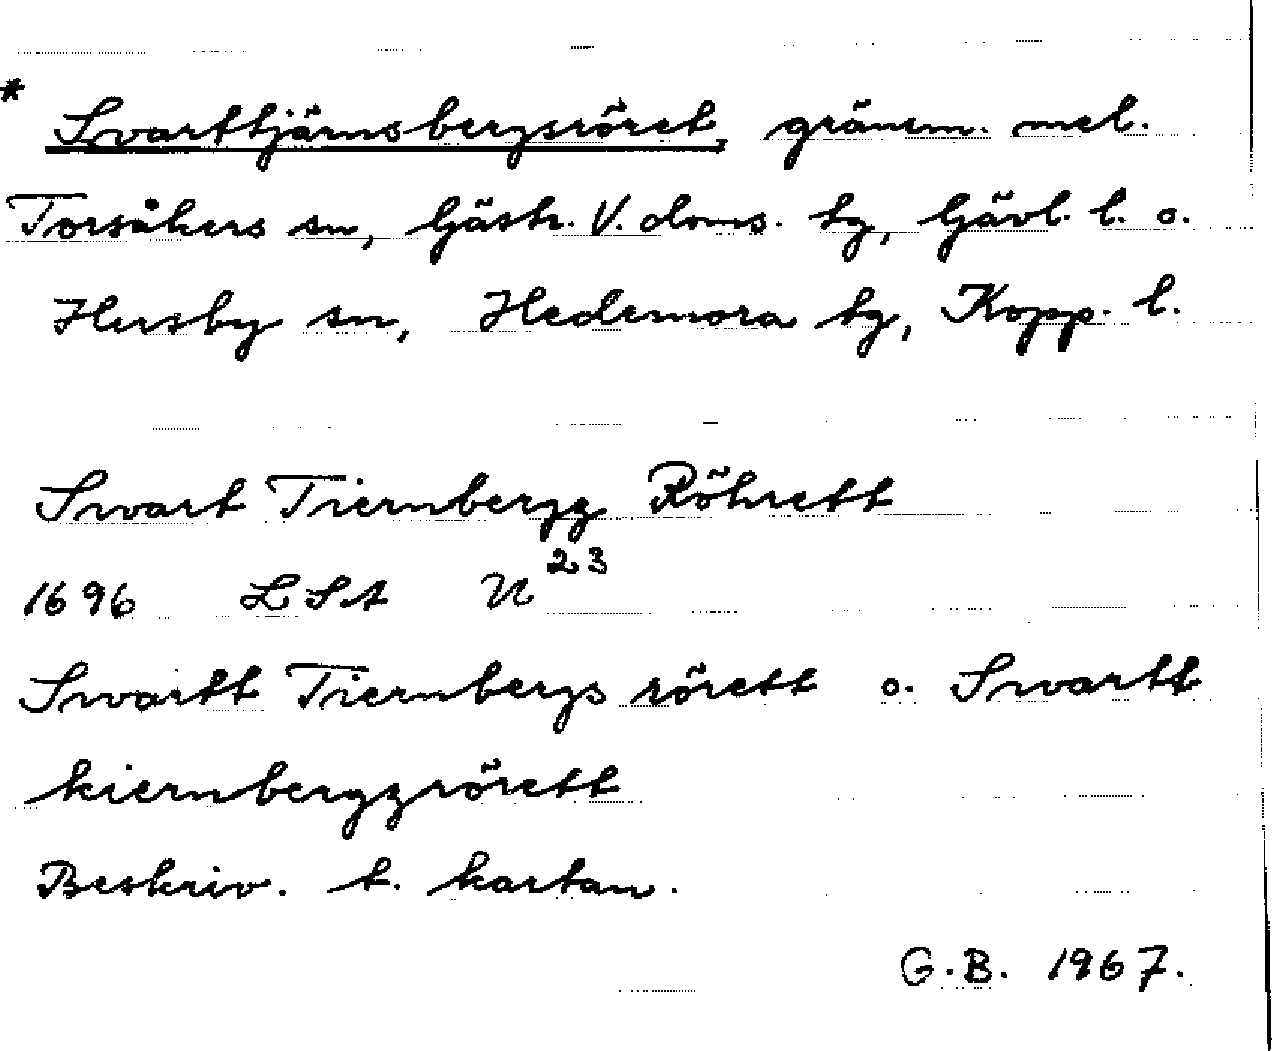 * Svarttjärnsbergsröret, gränsm. mel.
Torsåkers sn, Gästr. V. doms. tg, Gävl. l. o.
Husby sn, Hedemora tg, Kopp. l.
Swart Tiernbergz Röhrett
1696 LSA U 23
Swartt Tiernbergs rörett o. Swartt
kiernbergzrörett
Beskriv. t. kartan.
G.B. 1967.